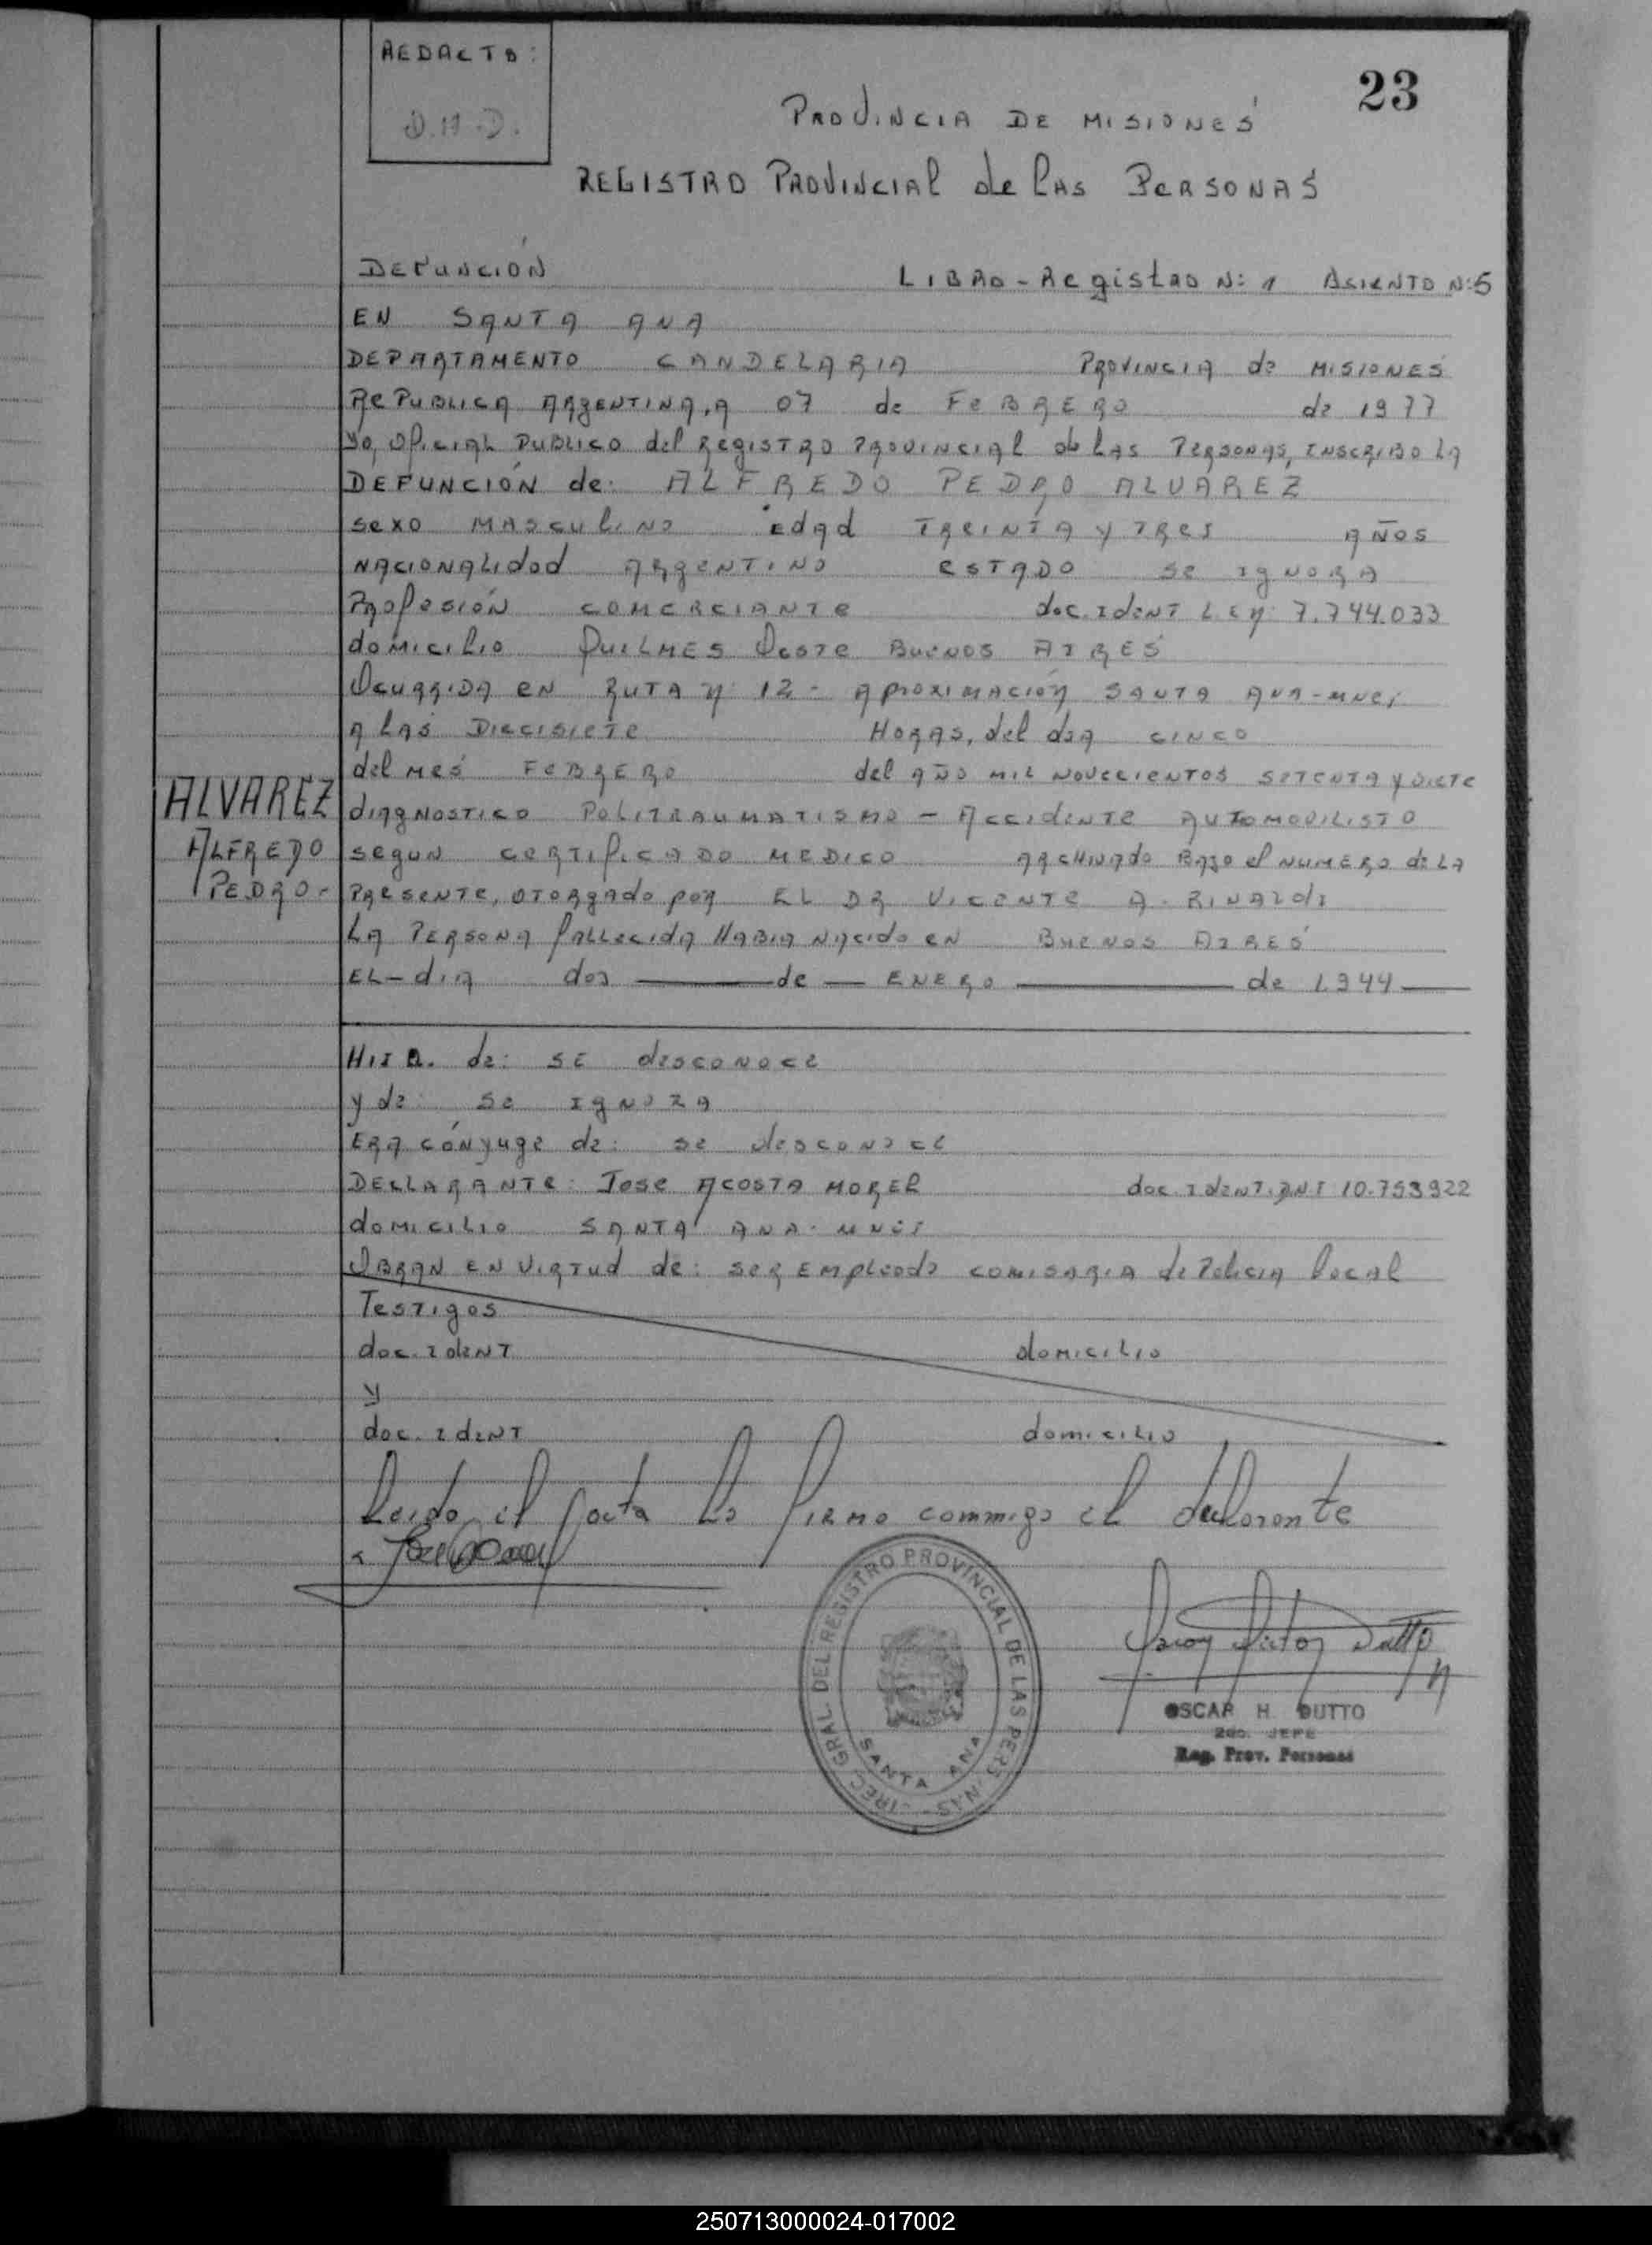 REDACTO:
D.H.D.
23
PROVINCIA DE MISIONES
REGISTRO PROVINCIAL de las PERSONAS
DEFUNCIÓN LIBRO-Registro N: 1 ASIENTO N:5
EN SANTA ANA
DEPARTAMENTO CANDELARIA PROVINCIA de MISIONES
REPUBLICA ARGENTINA, A 07 de FEBRERO de 1977
yo, Oficial PUBLICO del REGISTRO PROVINCIAL de las PERSONAS, INSCRIBO LA
DEFUNCIÓN de: ALFREDO PEDRO ALVAREZ
sexo MASCULINO Edad TREINTA y TRES AÑOS
NACIONALIDAD ARGENTINO ESTADO se IGNORA
Profesión COMERCIANTE doc. IdENT L.E N: 7.744.033
domicilio QUILMES OESTE BUENOS AIRES
OCURRIDA EN RUTA N: 12 - APROXIMACIÓN SANTA ANA-MNES
A LAS DIECISIETE HORAS, del día CINCO
del MES FEBRERO del AÑO MIL NOVECIENTOS SETENTA y SIETE
diagnostico POLITRAUMATISMO - ACCIDENTE AUTOMOVILISTO
según CERTIFICADO MEDICO ARCHIVADO BAJO el NUMERO de LA
PRESENTE, OTORGADO por EL DR VICENTE A. RINALDI
LA PERSONA fallecida HABIA NACIDO EN BUENOS AIRES
EL-día dos — de — ENERO — de 1944 —
ALVAREZ
ALFREDO
PEDRO-
HIJO. de: SE desconoce
y de: se IGNORA
ERA cónyuge de: se desconoce
DECLARANTE: JOSE ACOSTA MOREL doc. IdENT. DNI 10.753922
domicilio SANTA ANA-MNES
OBRAN EN VIRTUD de: SER Empleado COMISARIA de Policia local
Testigos
doc. IdENT domicilio
y
doc. IdENT domicilio
Leido el acta la firmo commigo el declarante
DIREC. GRAL. DEL REGISTRO PROVINCIAL DE LAS PERSONAS
SANTA ANA
OSCAR H. DUTTO
2do. JEFE
Reg. Prov. Personas
250713000024-017002